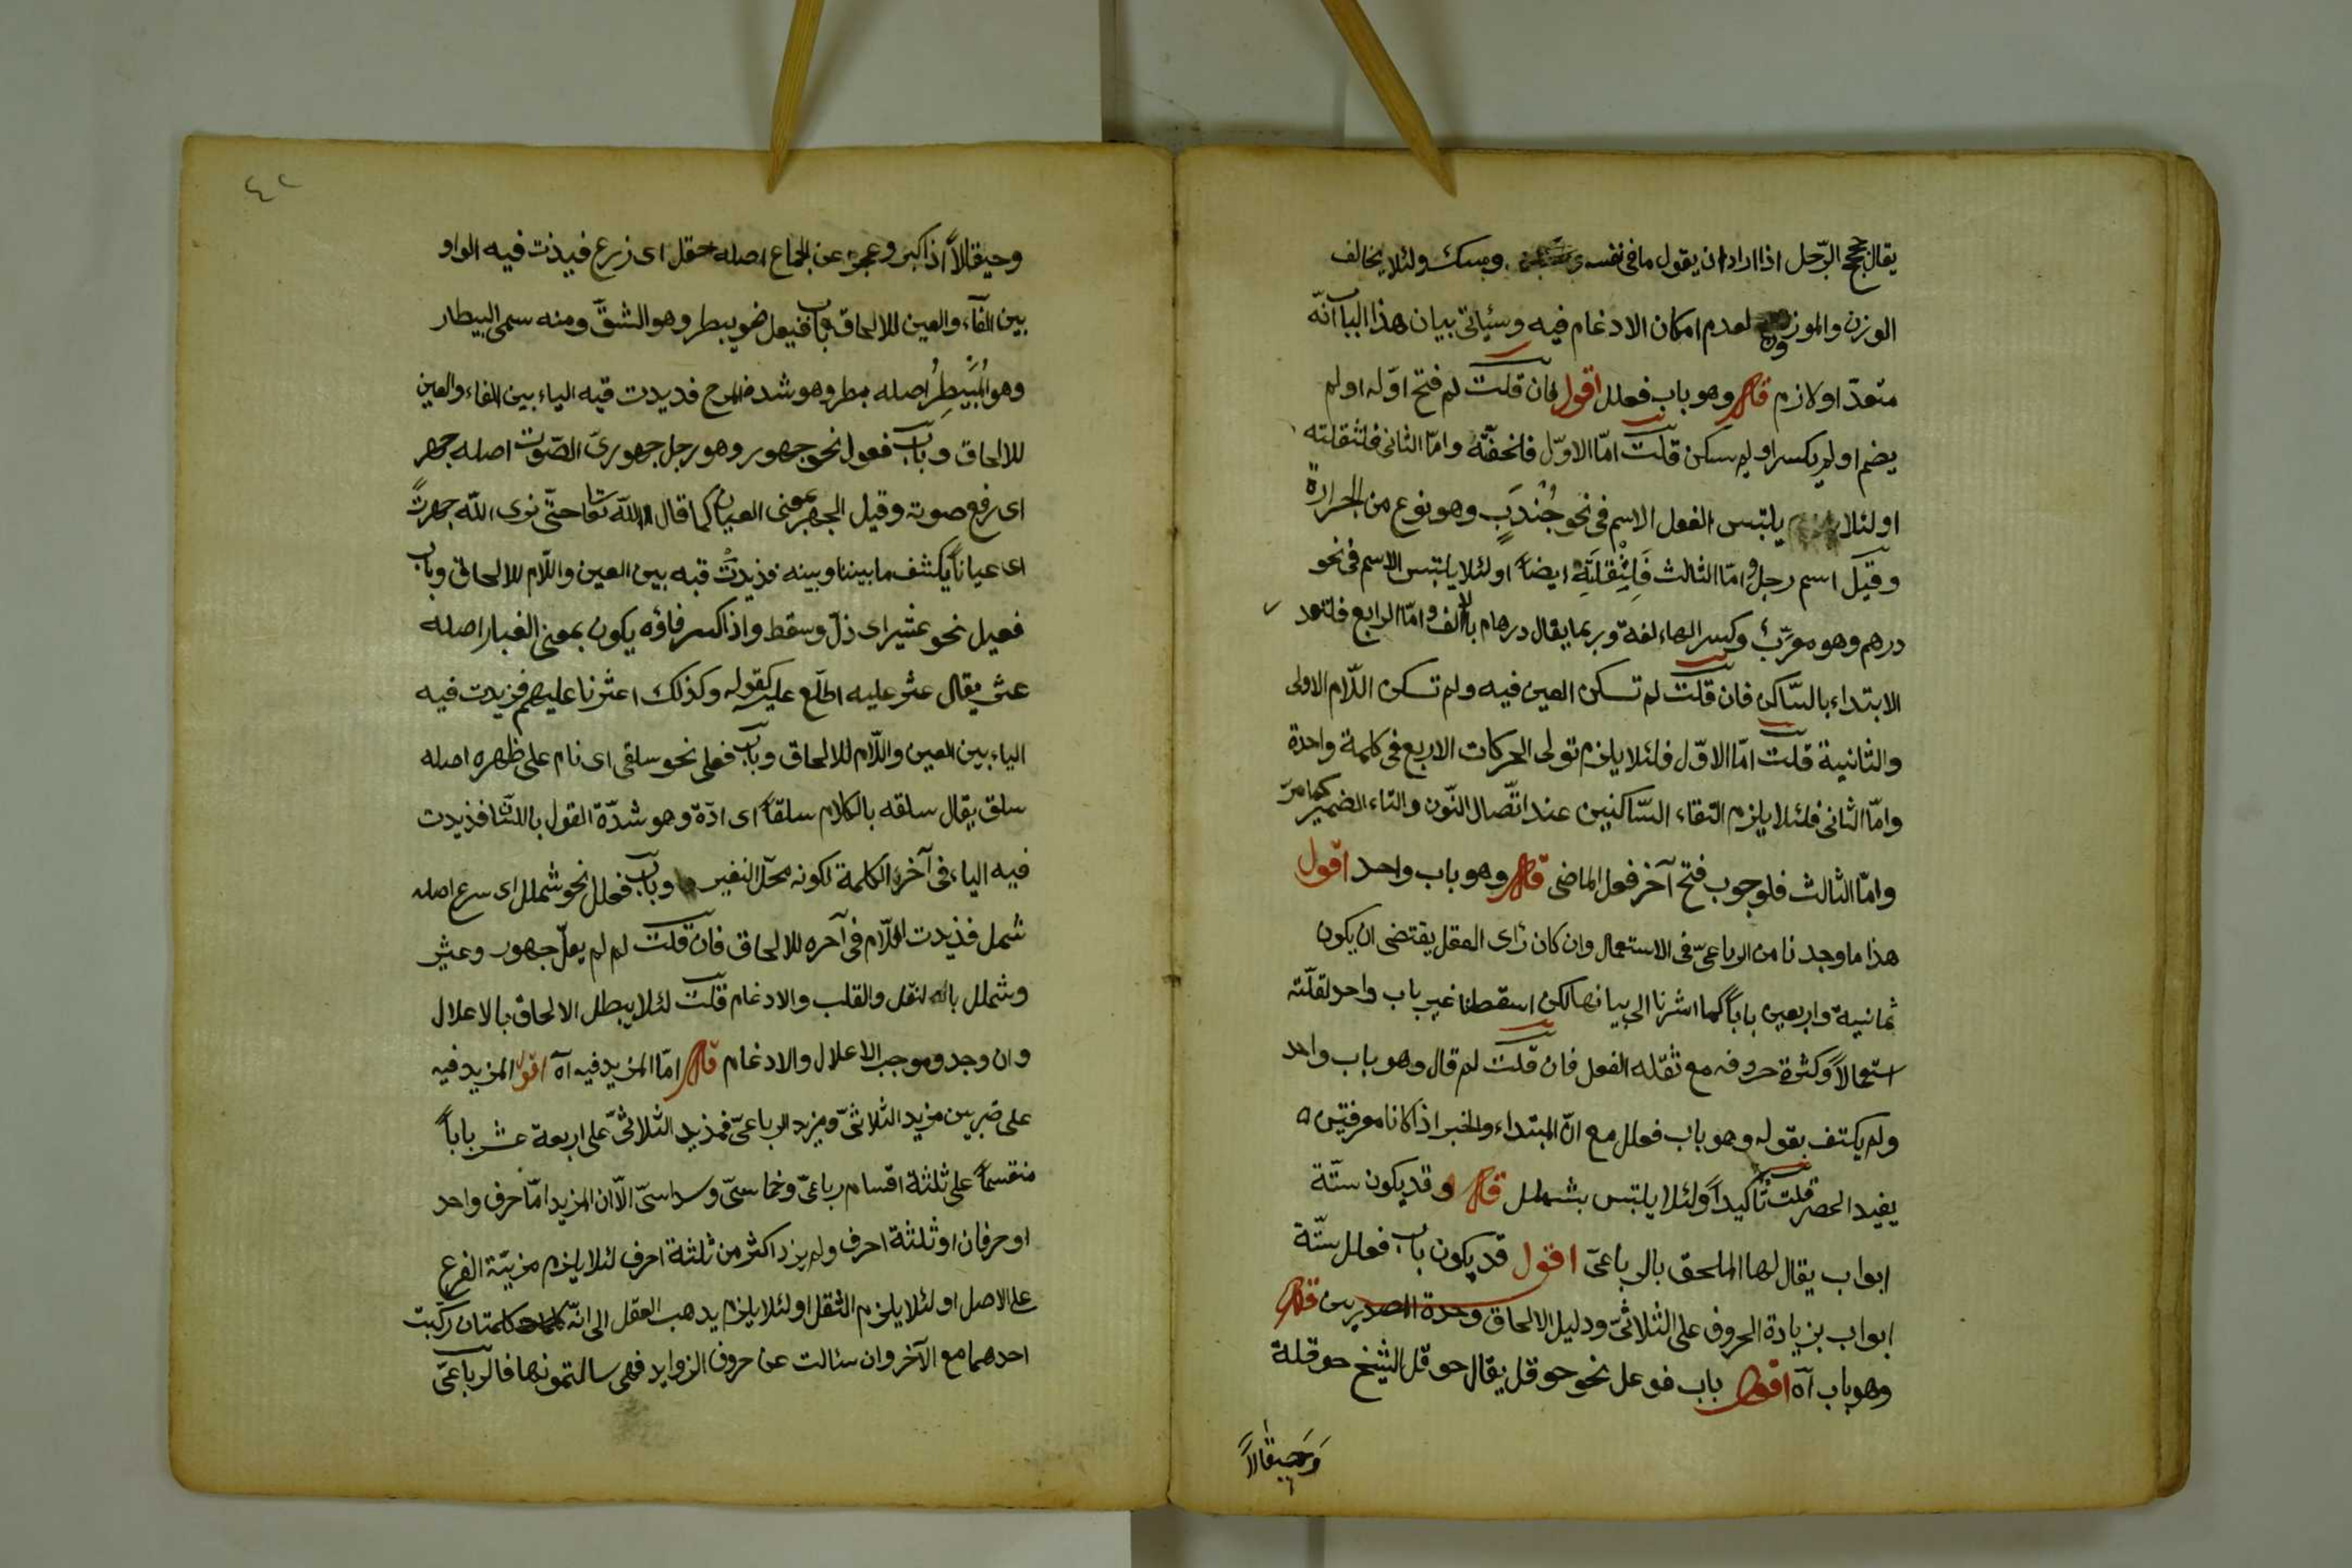 يقال بحج الرّجل اذا اراد ان يقول ما فى نفسه ولئلا يخالف
الوزن والموزون لعدم امكان الادغام فيه وسيأتى بيان هذا الباب انّه
متعدّ او لازم قال وهو باب فعلل اقول فان قلت لم فتح اوّله او لم
يضم او لم يكسر او لم يسكن قلت امّا الاوّل فلخفّته وامّا الثانى فلثقلته
او لئلا يلتبس الفعل الاسم فى نحو جُنْدَبٍ وهو نوع من الجرادة
وقيل اسم رجل وامّا الثالث فَلِثْقلَتِهِ ايضاً او لئلا يلتبس الاسم فى نحو
درهم وهو معرّب وكسر الهاء لغة وربما يقال درهام بالالف وامّا الرابع فلتعذر
الابتداء بالسّاكن فان قلت لم تسكن العين فيه ولم تسكن اللّام الاولى
والثانية قلت امّا الاوّل فلئلا يلزم تولى الحركات الاربع فى كلمة واحدة
وامّا الثانى فلئلا يلزم التقاء السّاكنين عند اتّصال النّون والتاء الضمير كما مرّ
وامّا الثالث فلوجوب فتح آخر فعل الماضى قال وهو باب واحد اقول
هذا ما وجدنا من الرباعىّ فى الاستعمال وان كان رأى العقل يقتضى ان يكون
ثمانية واربعين باباً كما اشرنا الى بيانها لكن اسقطنا غير باب واحد لقلّته
استعمالاً وكثرة حروفه مع ثقله الفعل فان قلت لم قال وهو باب واحد
ولم يكتف بقوله وهو باب فعلل مع انّ المبتداء والخبر اذا كانا معرفتين
يفيد الحصر قلت تأكيداً ولئلا يلتبس بشملل قال وقد يكون ستّة
ابواب يقال لها الملحق بالرباعىّ اقول قد يكون باب فعلل ستّة
ابواب بزيادة الحروف على الثلاثىّ ودليل الالحاق وحدة المصدرين قال
وهو باب آه اقول باب فوعل نحو حوقل يقال حوقل الشيخ حوقلة
وَحِيقَالاً
٤٢
وحيقالاً اذا كبر وعجز عن الجماع اصله حقل اى زرع فزيدت فيه الواو
بين الفاء والعين للالحاق وباب فيعل نحو بيطر وهو الشقّ ومنه سمى البيطار
وهو المُبَيْطِرُ اصله بطر وهو شدة المرح فزيدت فيه الياء بين الفاء والعين
للالحاق وباب فعول نحو جهور وهو رجل جهورىّ الصّوت اصله جهر
اى رفع صوته وقيل الجهر بمعنى العيان كما قال الله تعا حتّى نرى الله جهرةً
اى عياناً يكشف ما بيننا وبينه فزيدت فيه بين العين واللّام للالحاق وباب
فعيل نحو عثير اى ذلّ وسقط واذا كسر فاؤه يكون بمعنى الغبار اصله
عثر يقال عثر عليه اطلّع عليه كقوله وكذلك اعثرنا عليهم فزيدت فيه
الياء بين العين واللّام للالحاق وباب فعلى نحو سلقى اى نام على ظهره اصله
سلق يقال سلقه بالكلام سلقاً اى اذّه وهو شدّة القول باللسان فزيدت
فيه الياء فى آخر الكلمة لكونه محلّ التغير وباب فعلل نحو شملل اى سرع اصله
شمل فزيدت اللّام فى آخره للالحاق فان قلت لم لم يعلّ جهور وعثير
وشملل بالنقل والقلب والادغام قلت لئلا يبطل الالحاق بالاعلال
وان وجد موجب الاعلال والادغام قال امّا المزيد فيه آه اقول المزيد فيه
على ضربين مزيد الثلاثىّ ومزيد الرباعىّ فمزيد الثلاثىّ على اربعة عشر باباً
منقسماً على ثلثة اقسام رباعىّ وخماسىّ وسداسىّ الّا ان المزيد امّا حرف واحد
او حرفان او ثلثة احرف ولم يزد اكثر من ثلثة احرف لئلا يلزم مزيّة الفرع
على الاصل او لئلا يلزم الثقل او لئلا يلزم يدهب العقل الى انّه كلمتان ركبت
احدهما مع الآخر وان سئالت عن حروف الزوايد فهى سالتمونها فالرباعىّ